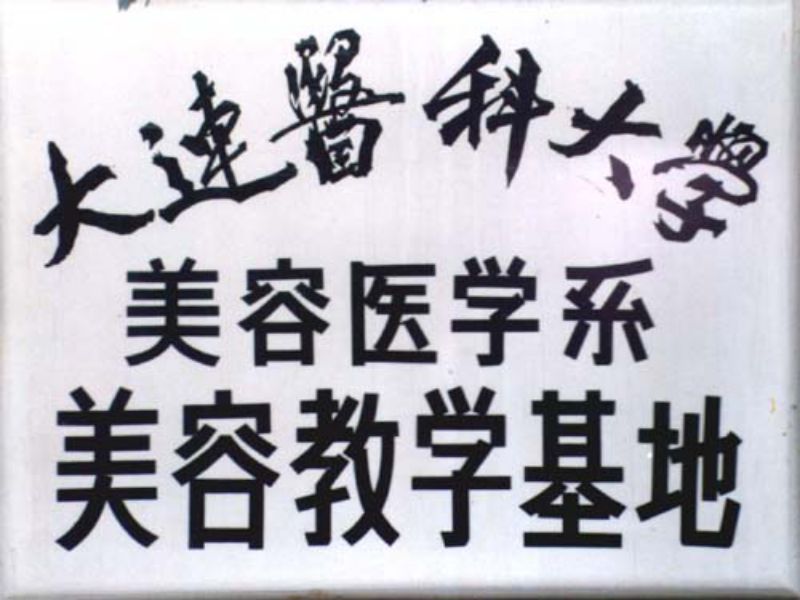 大連醫科大學
美容医学系
美容教学基地